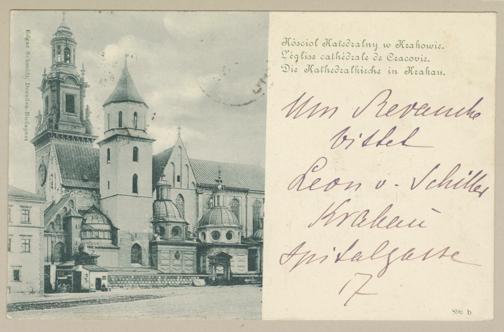 Kościol Katedralny w Krakowie.
L'église cathédrale de Cracovie.
Die Kathedralkirche in Krakau.
Um Revanche
bittet
Leon v. Schiller
Krakau
Spitalgasse
17